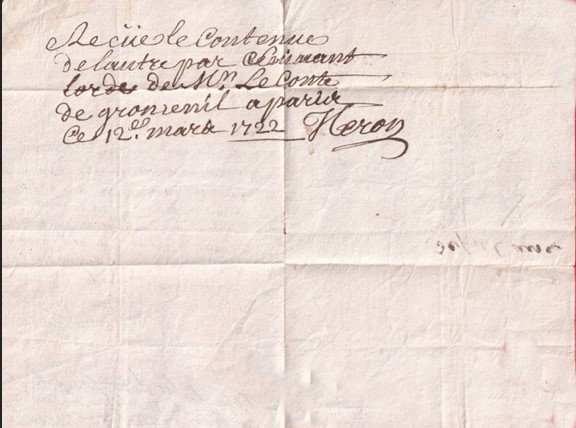 Reçüe le Contenue
de lautre par
lorde de Mr Le Conte
de gromenil a paris
Ce 12.e mars 1722 Heron